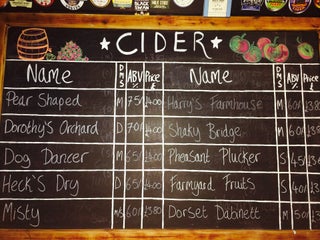 BLACK SWAN
★ CIDER ★
Name D M S ABV % Price £ Name D M S ABV % Price £
Pear Shaped M 7.5 4.00 Harry's Farmhouse M 6.0 3.80
Dorothy's Orchard D 7.5 4.00 Shaky Bridge M 6.0 3.80
Dog Dancer M 6.5 4.00 Pheasant Plucker S 4.5
Heck's Dry D 6.5 4.00 Farmyard Fruits S 4.0
Misty MS 6.0 3.80 Dorset Dabinett M 5.0 3.80